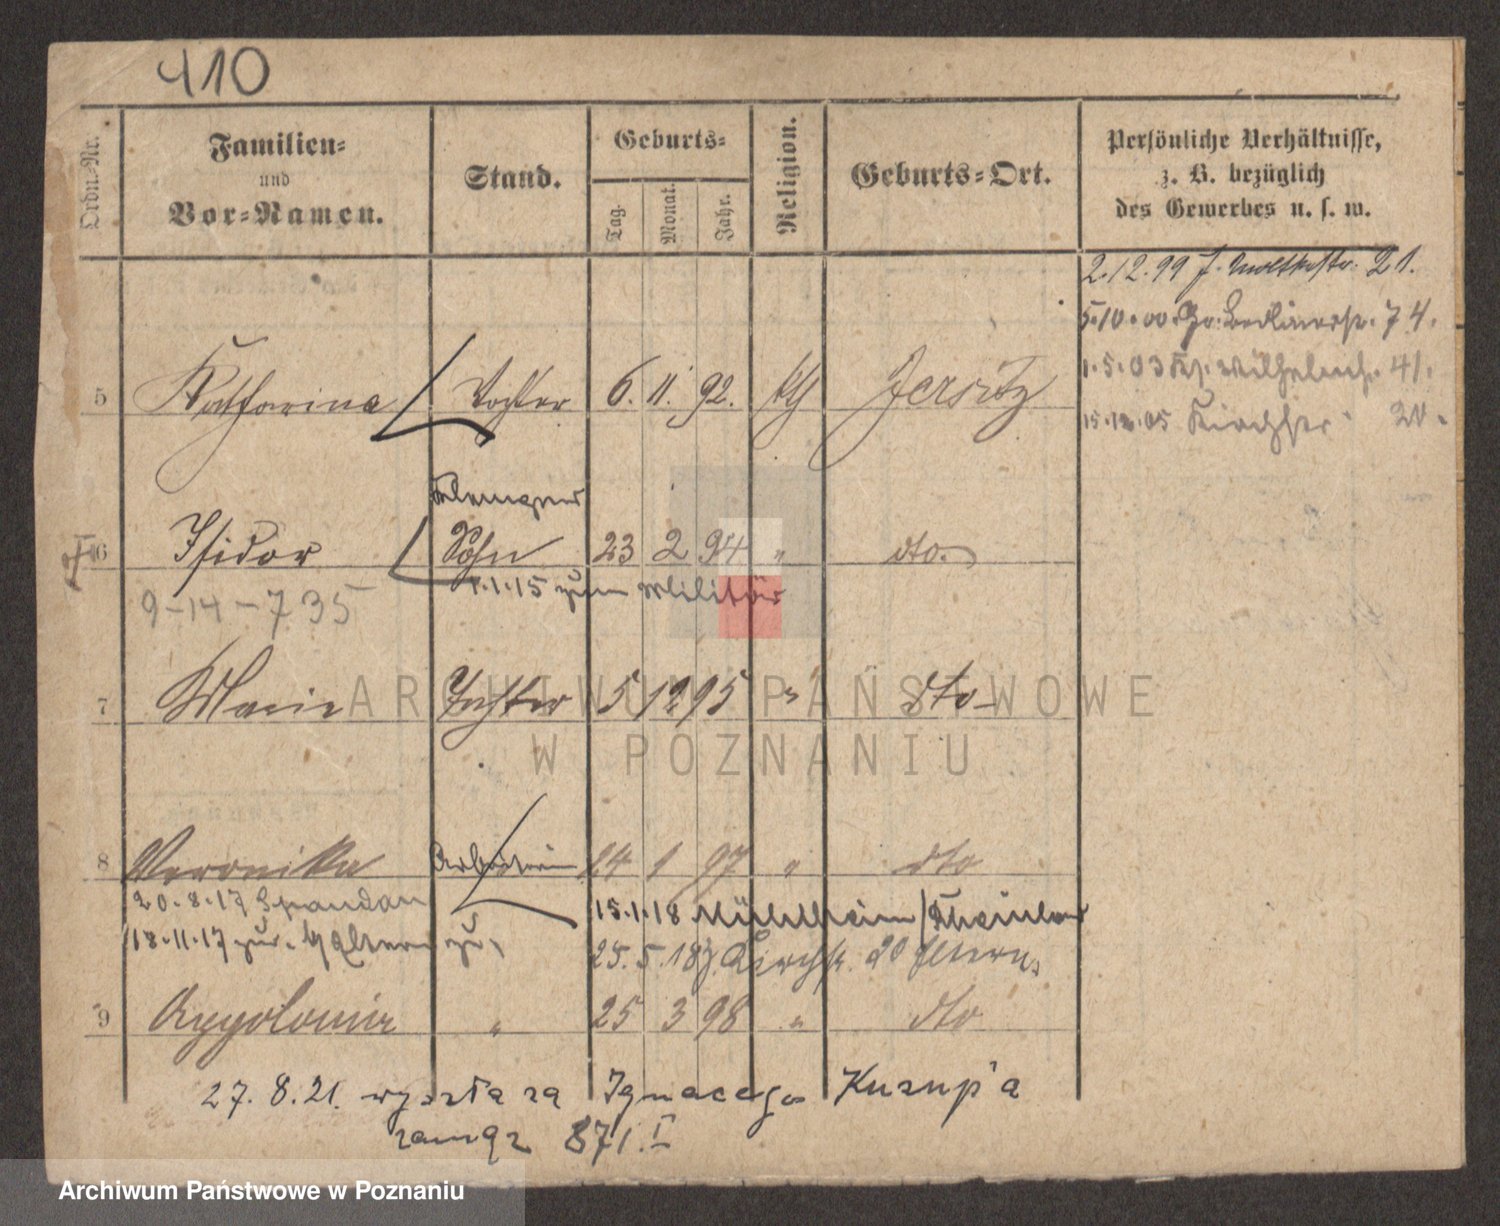 410
Ordn.-Nr.
Familien-
und
Vor-Namen.
Stand.
Geburts-
Tag.
Monat.
Jahr.
Religion.
Geburts-Ort.
Persönliche Verhältnisse,
z. B. bezüglich
des Gewerbes u. s. w.
2.12.99 J. Moltkestr. 21.
5.10.00. Gr. Berlinerstr. 74.
1.5.03 Kr. Wilhelmstr. 41.
15.12.05 Kirchstr 20.
5 Katharina Tochter 6. 11. 92. kth Jersitz
Klempner
6 Isidor Sohn 23 2 94 " dto.
1.1.15 zum Militär
9-14-735
7 Marie Tochter 5 12 95 " dto
8 Veronika Arbeiterin 14 1 97 " dto
20.8.17 Spandau
15.1.18 Mühlheim / Rheinland
18.11.17 zur. Eltern zu,
25.5.18 z. Kirchstr. 20 Eltern
9 Appolonia " 25 3 98 " dto
27.8.21. wyszła za Ignacego Kurup'a
zamąz 871.I
ARCHIWUM PAŃSTWOWE
W POZNANIU
Archiwum Państwowe w Poznaniu